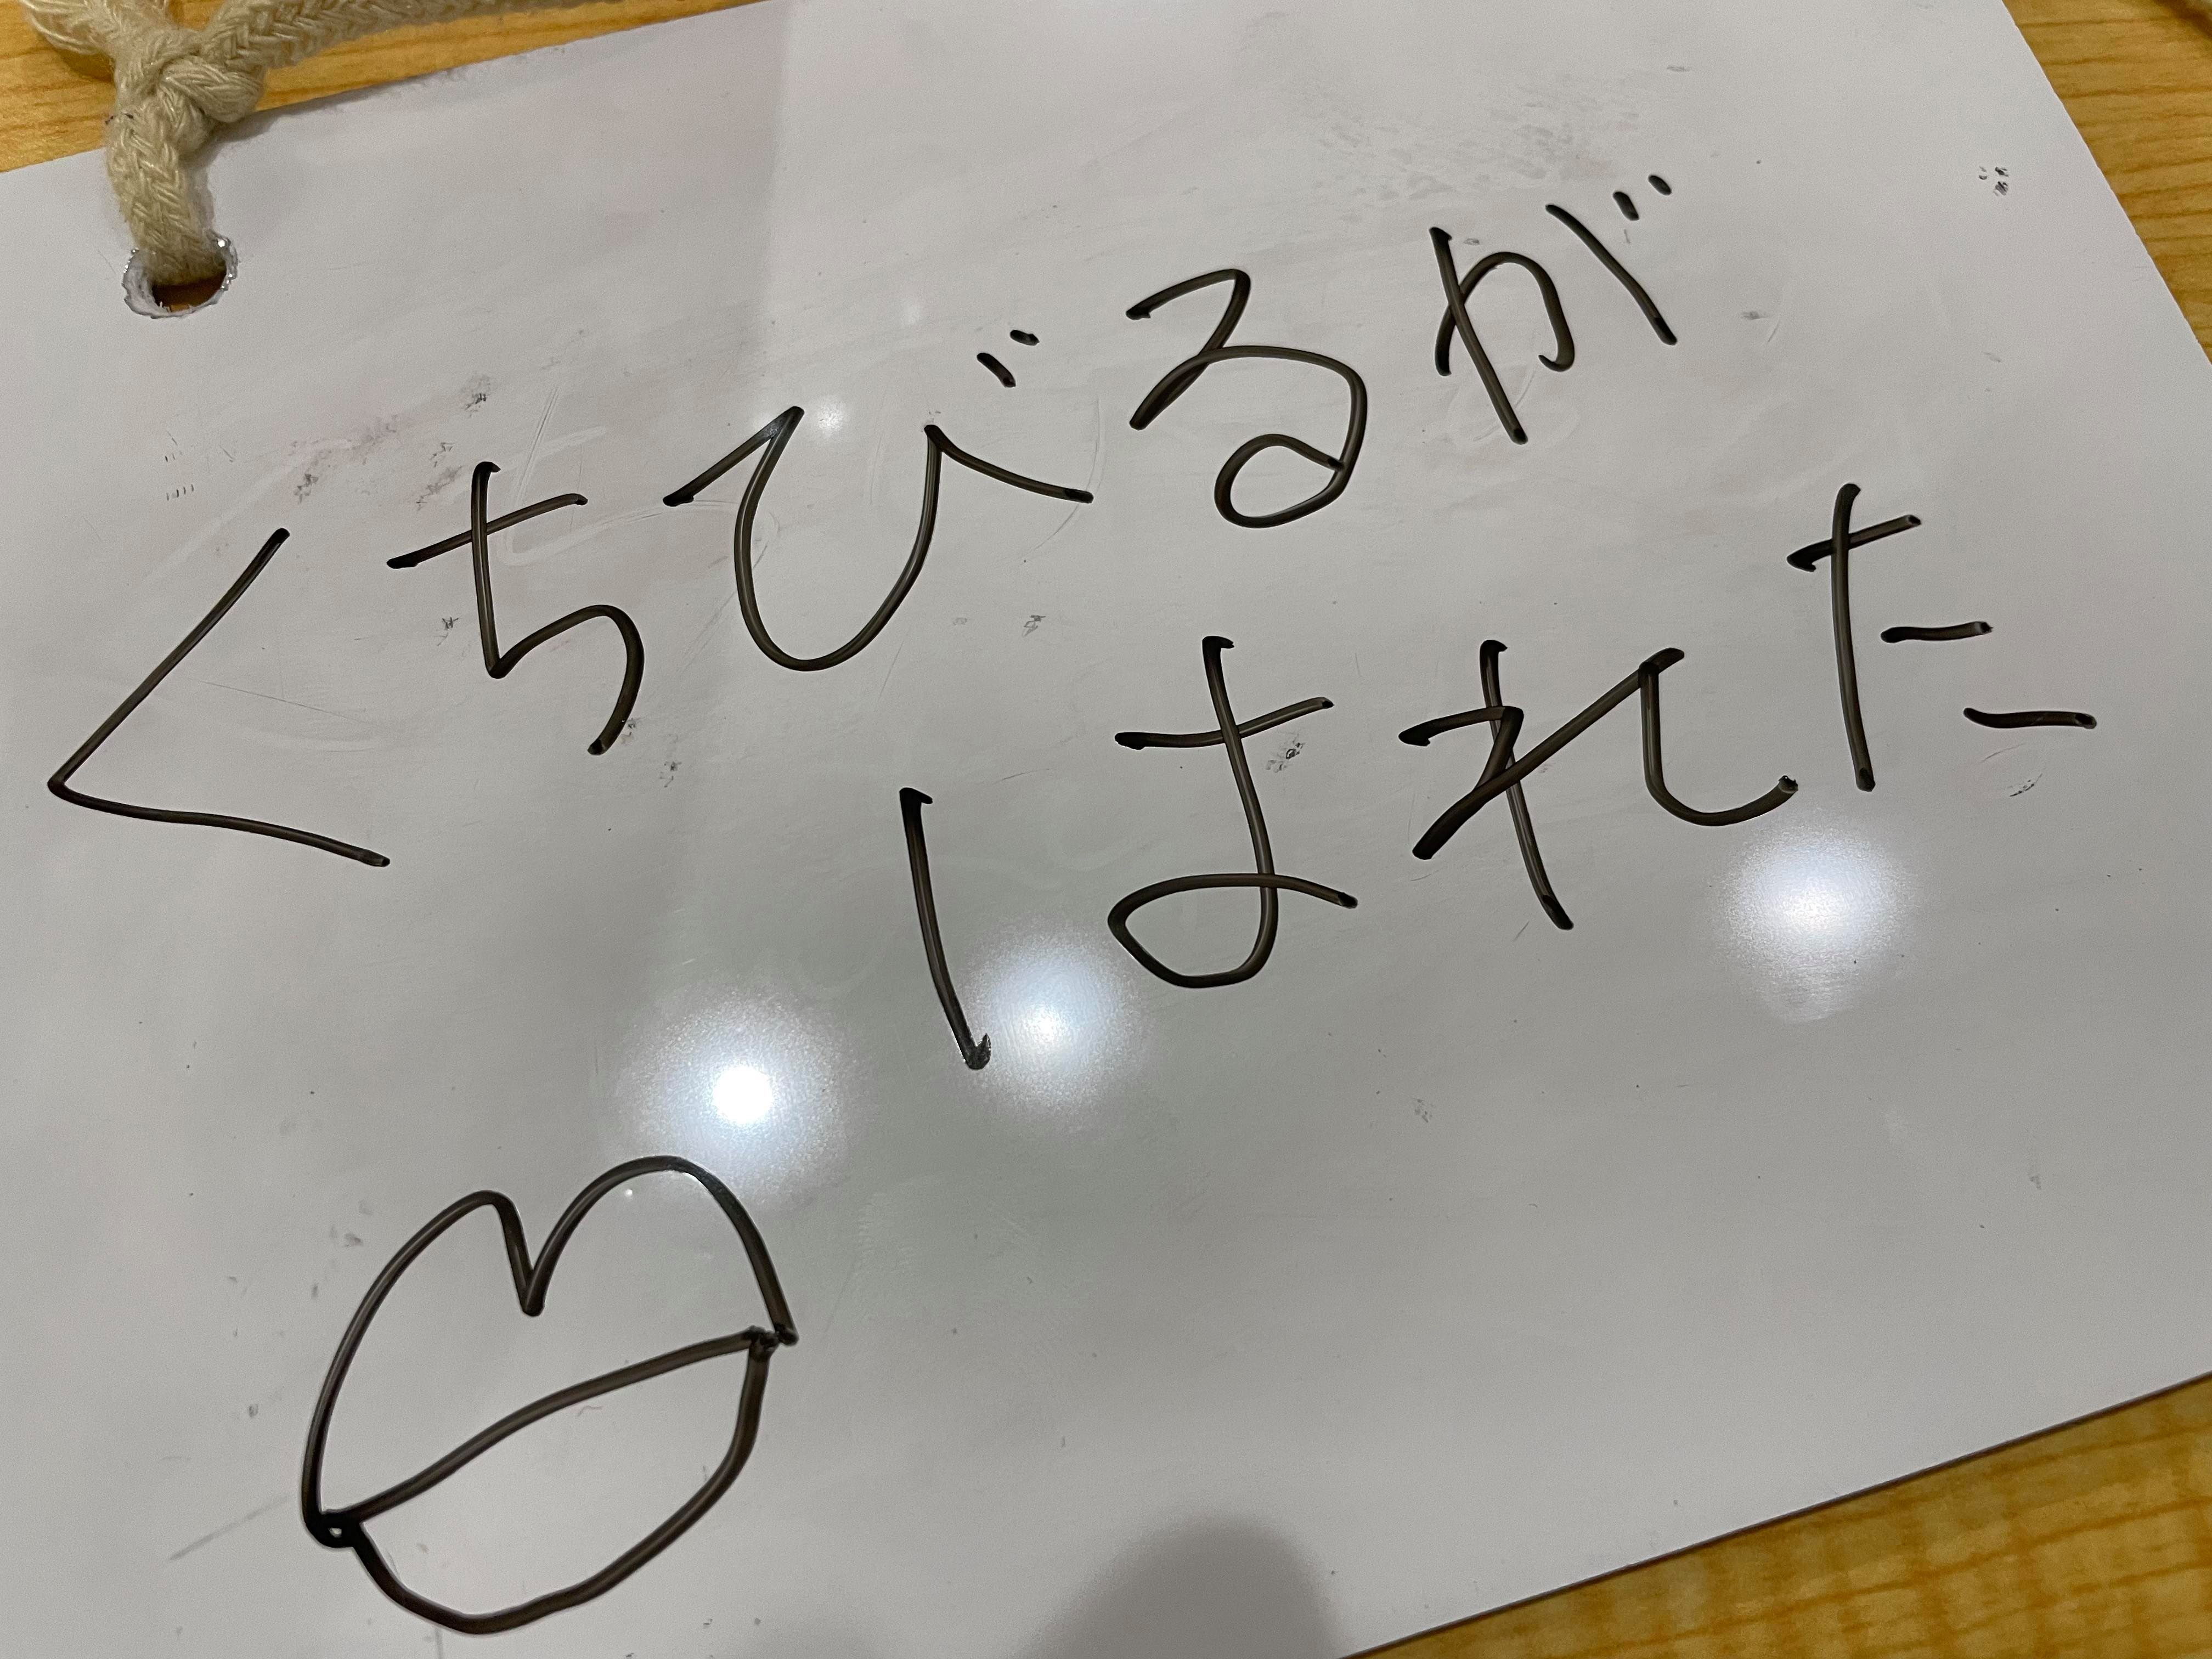 くちびるが
はれた